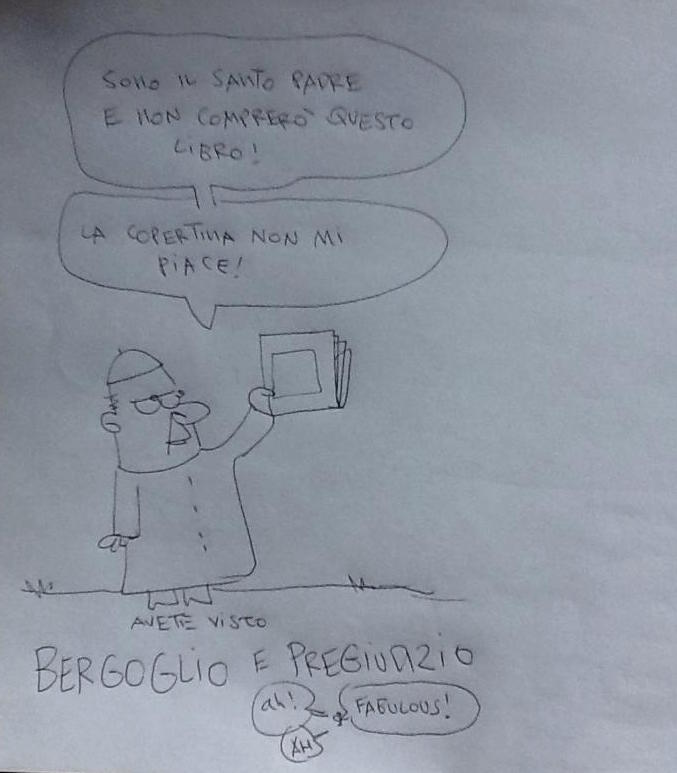 SONO IL SANTO PADRE
E NON COMPRERÒ QUESTO
LIBRO!
LA COPERTINA NON MI
PIACE!
AVETE VISTO
BERGOGLIO E PREGIUDIZIO
ah!
FABULOUS!
XH